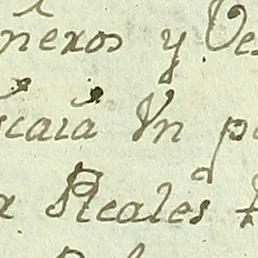 nexos y Ve
icara Vn p
a Reales